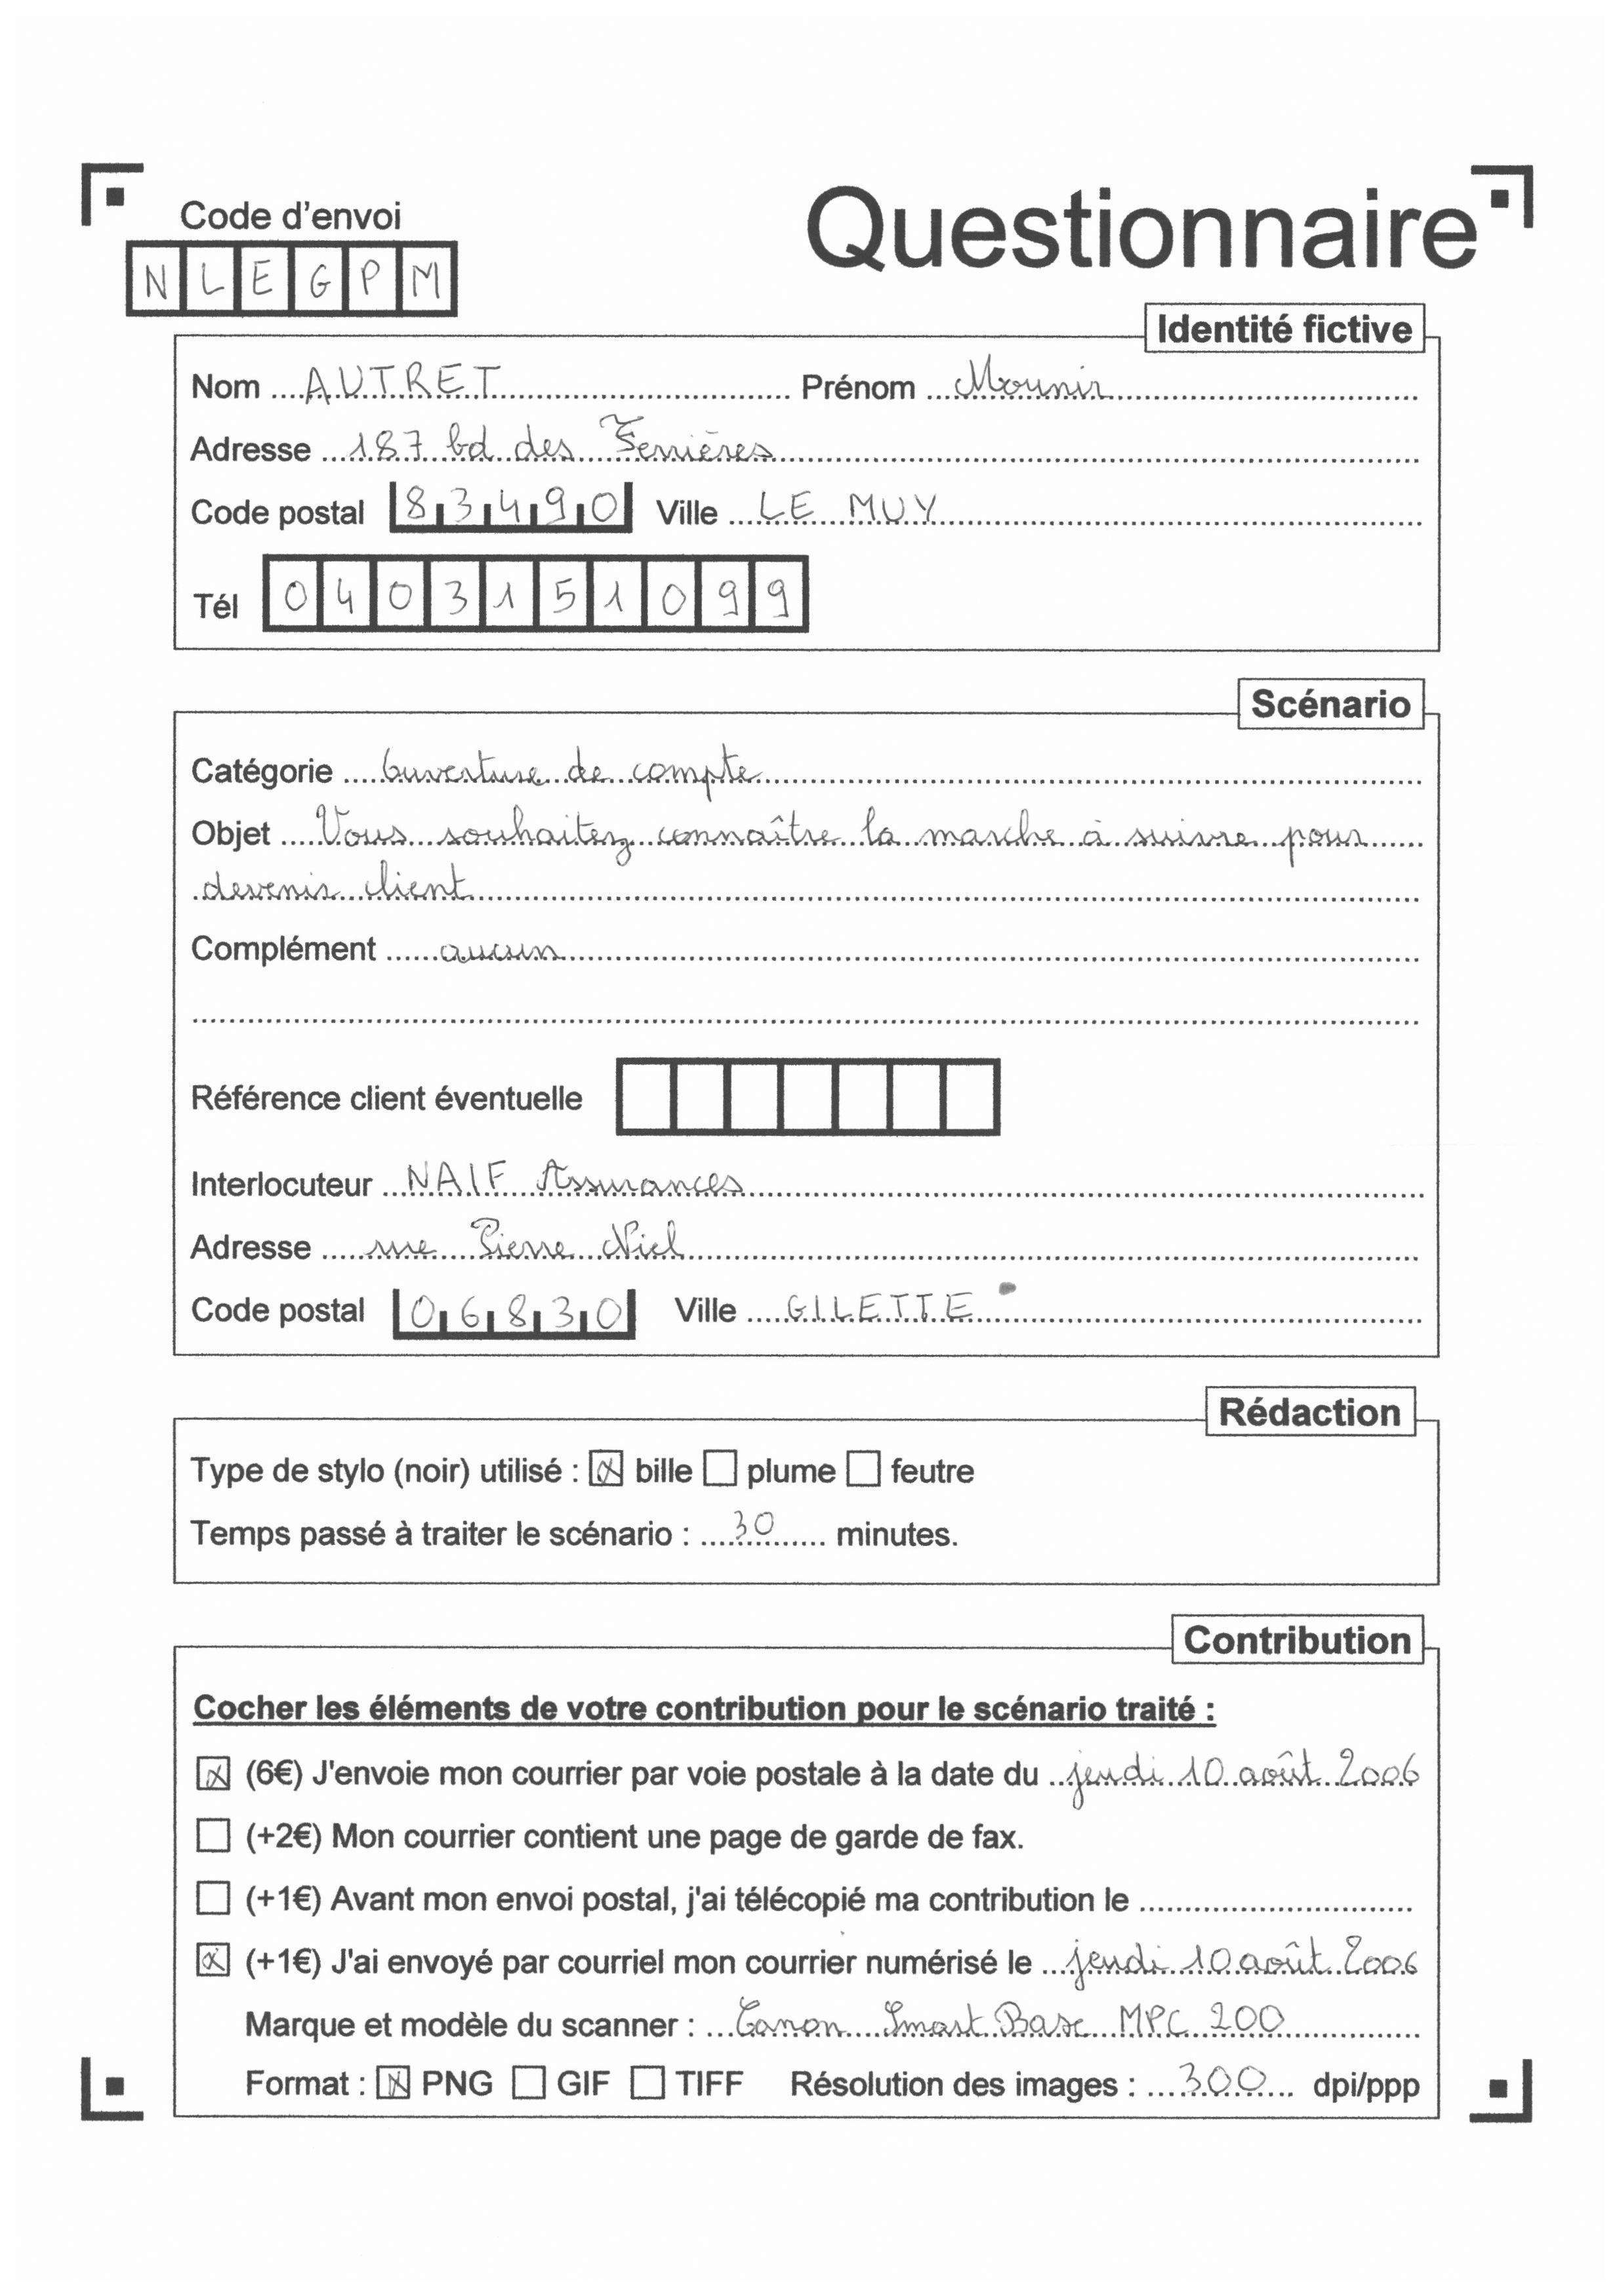 Code d'envoi
Questionnaire
NLEGPM
Identité fictive
Nom AUTRET Prénom Mounir
Adresse 187 bd des Ferrières
Code postal 83490 Ville LE MUY
Tél 0403151099
Scénario
Catégorie Ouverture de compte
Objet Vous souhaitez connaître la marche à suivre pour
devenir client
Complément aucun
Référence client éventuelle
Interlocuteur NAIF Assurances
Adresse rue Pierre Niel
Code postal 06830 Ville GILETTE
Rédaction
Type de stylo (noir) utilisé : bille plume feutre
Temps passé à traiter le scénario : 30 minutes.
Contribution
Cocher les éléments de votre contribution pour le scénario traité :
(6€) J'envoie mon courrier par voie postale à la date du jeudi 10 août 2006
(+2€) Mon courrier contient une page de garde de fax.
(+1€) Avant mon envoi postal, j'ai télécopié ma contribution le
(+1€) J'ai envoyé par courriel mon courrier numérisé le jeudi 10 août 2006
Marque et modèle du scanner : Canon Smart Base MPC 200
Format : PNG GIF TIFF Résolution des images : 300 dpi/ppp